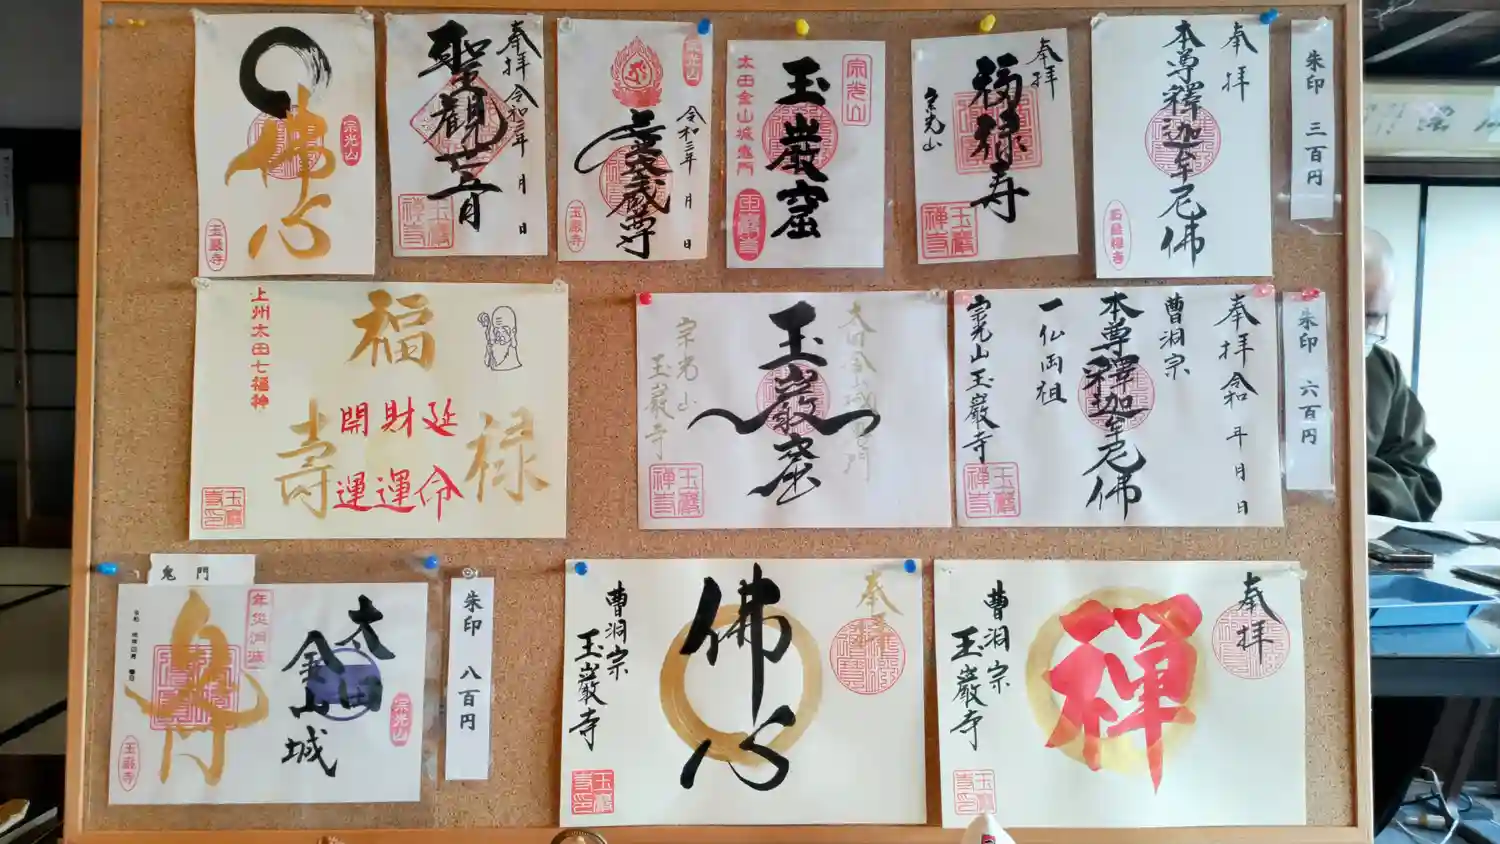 佛心
宗光山
玉巖寺
奉拝
令和三年 月 日
聖観世音
玉巖禅寺
宗光山
令和三年 月 日
虚空蔵尊
玉巖寺
宗光山
玉巌窟
太田金山城鬼門
奉拝
福禄寿
宗光山
玉巖禅寺
奉拝
本尊釋迦牟尼佛
朱印 三百円
上州太田七福神
福
禄
寿
延命
財運
開運
玉巖寺印
太田金山城鬼門
玉巌窟
宗光山
玉巖寺
玉巖禅寺
奉拝 令和 年 月 日
曹洞宗
本尊釋迦牟尼佛
一仏両祖
宗光山玉巖寺
玉巖禅寺
朱印 六百円
鬼門
太田
金山城
鬼門
宗光山
玉巖寺
朱印 八百円
奉拝
佛心
曹洞宗
玉巖寺
玉巖寺印
奉拝
禅
曹洞宗
玉巖寺
玉巖寺印